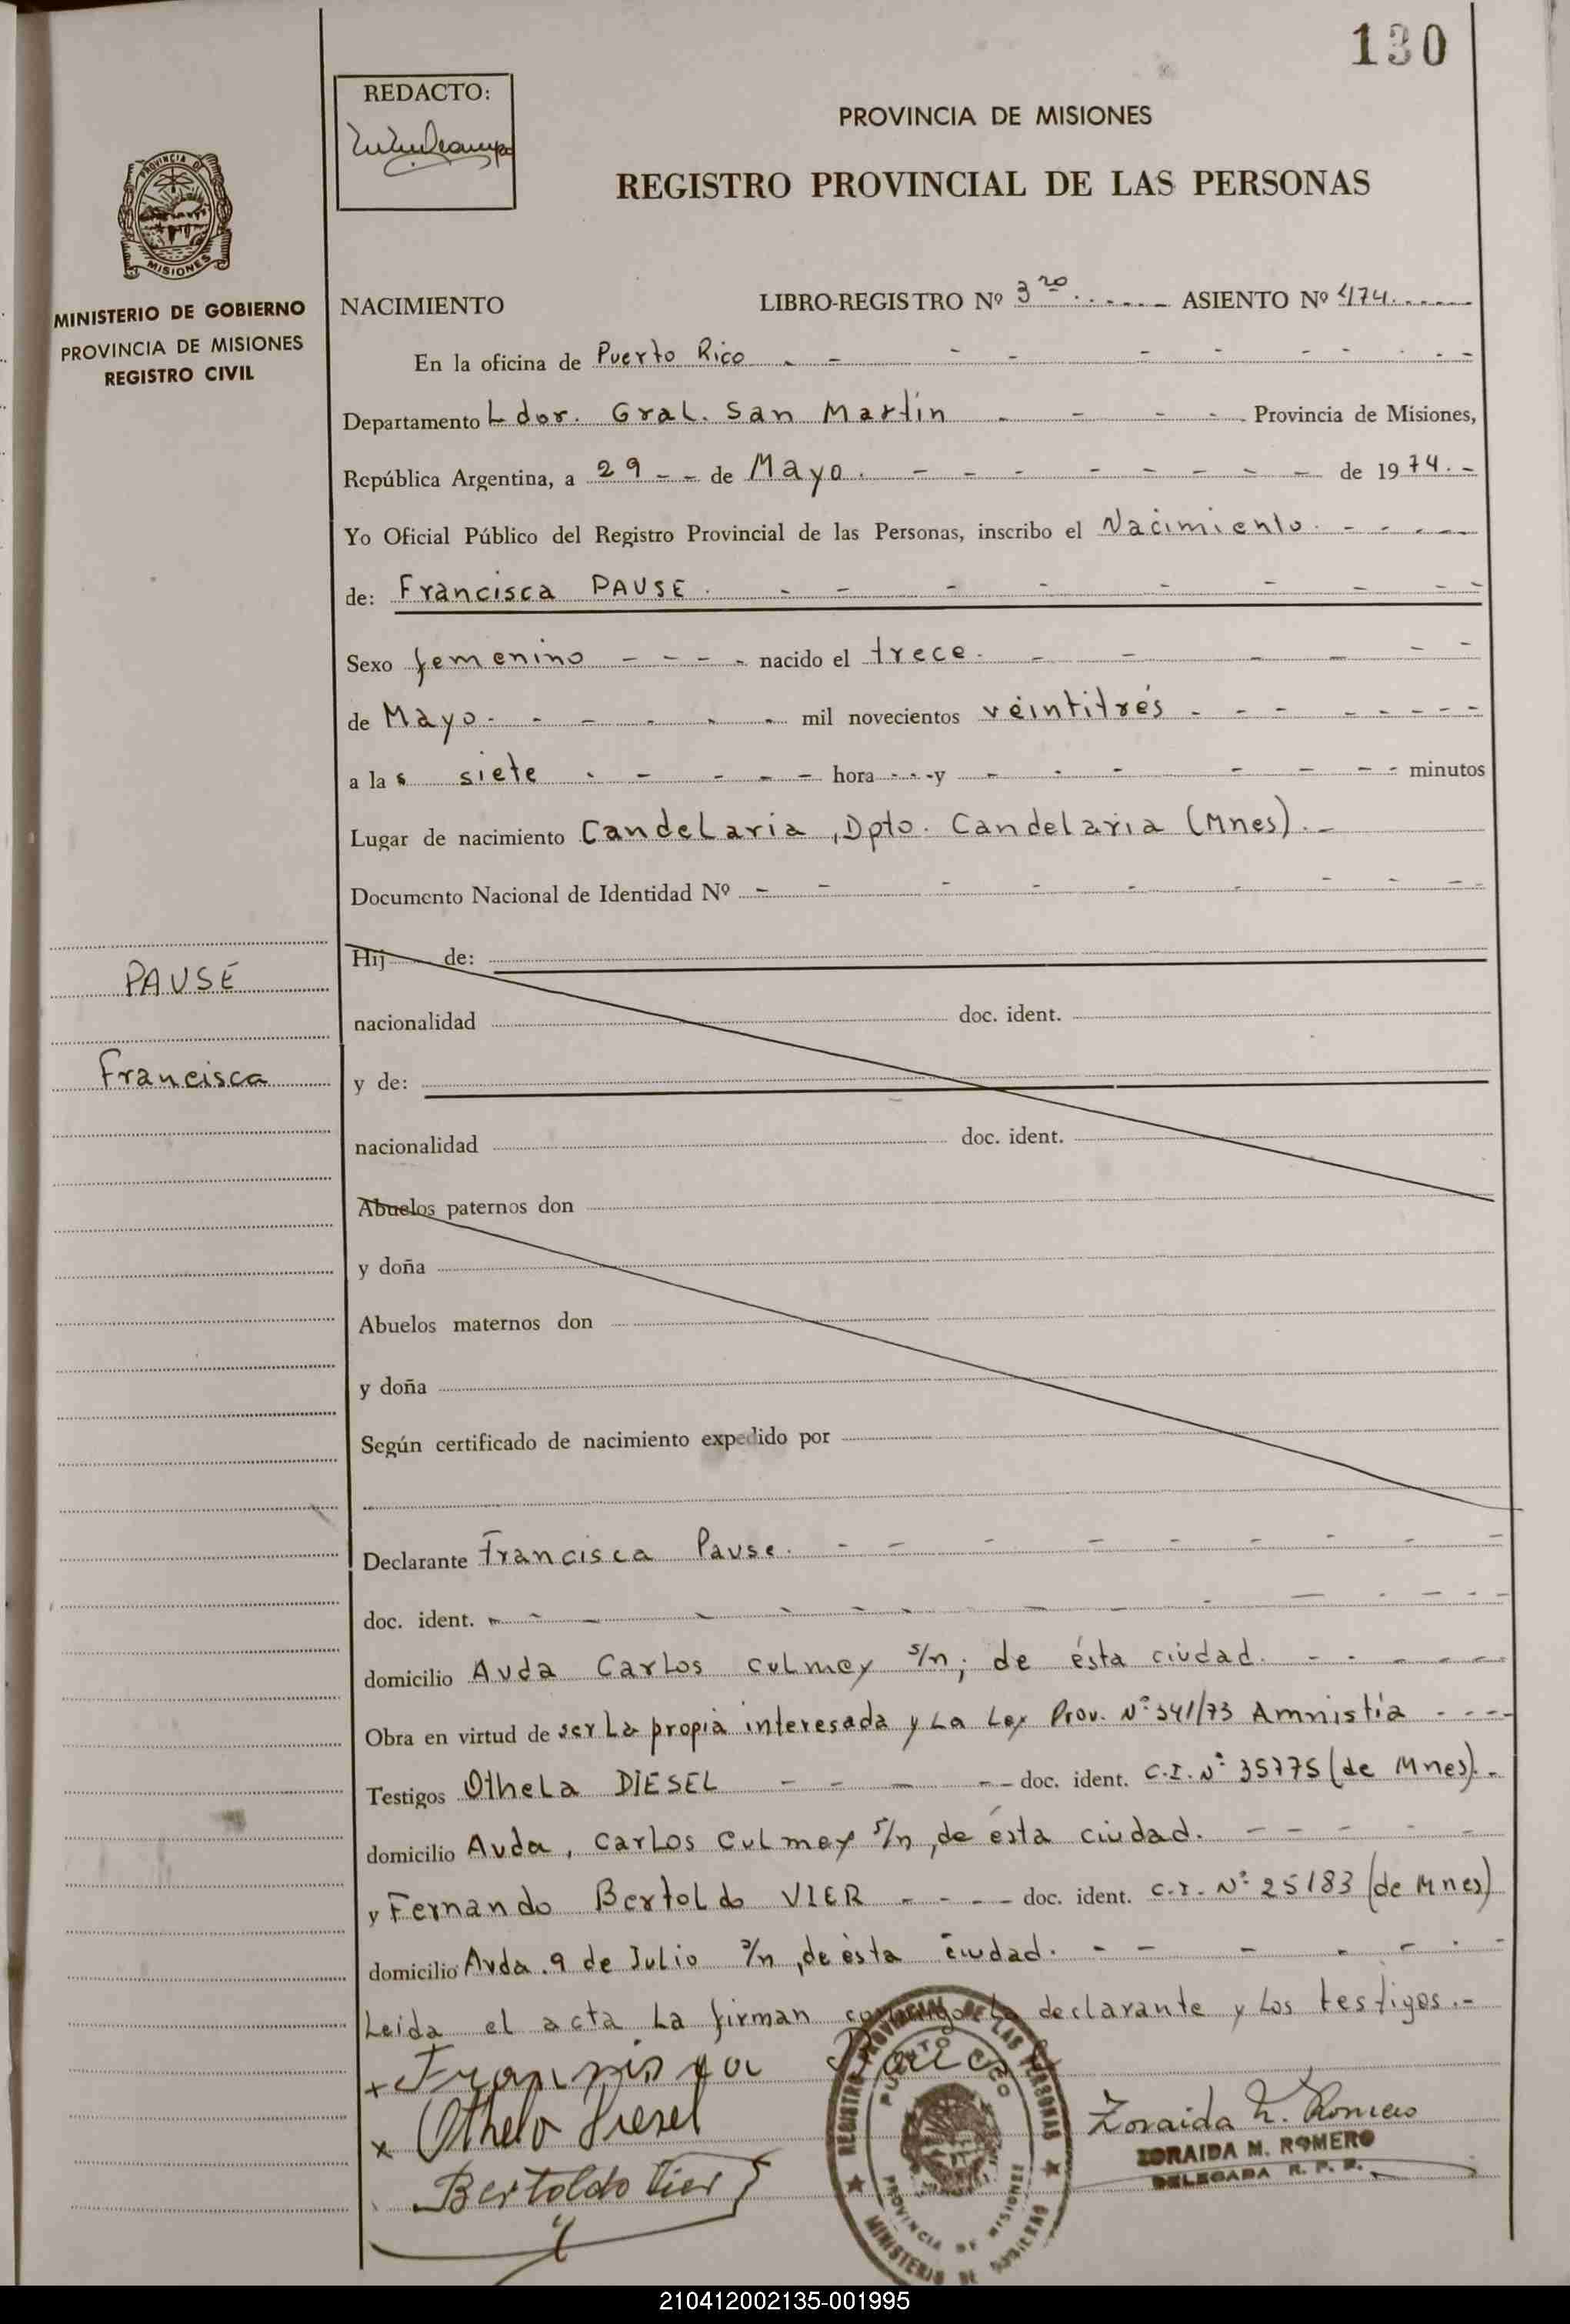 130
REDACTO:
PROVINCIA DE MISIONES
REGISTRO PROVINCIAL DE LAS PERSONAS
PROVINCIA DE
MISIONES
MINISTERIO DE GOBIERNO
PROVINCIA DE MISIONES
REGISTRO CIVIL
NACIMIENTO LIBRO-REGISTRO Nº 3ro. ASIENTO Nº 474.
En la oficina de Puerto Rico
Departamento Ldor. Gral. San Martín Provincia de Misiones,
República Argentina, a 29 de Mayo. de 1974.
Yo Oficial Público del Registro Provincial de las Personas, inscribo el Nacimiento.
de: Francisca PAUSE.
Sexo femenino nacido el trece.
de Mayo. mil novecientos veintitrés
a las siete hora y minutos
Lugar de nacimiento Candelaria, Dpto. Candelaria (Mnes).
Documento Nacional de Identidad Nº
Hij de:
PAUSE
nacionalidad doc. ident.
Francisca
y de:
nacionalidad doc. ident.
Abuelos paternos don
y doña
Abuelos maternos don
y doña
Según certificado de nacimiento expedido por
Declarante Francisca Pause.
doc. ident.
domicilio Avda Carlos Culmey s/n; de ésta ciudad.
Obra en virtud de ser La propia interesada y La Ley Prov. Nº 341/73 Amnistía
Testigos Othela DIESEL doc. ident. C.I. Nº 35775 (de Mnes).
domicilio Avda, Carlos Culmey s/n, de ésta ciudad.
y Fernando Bertoldo VIER doc. ident. C.I. Nº 25183 (de Mnes)
domicilio Avda. 9 de Julio s/n, de ésta ciudad.
Leida el acta La firman conmigo la declarante y Los testigos.-
x Francisca Pause
x Othela Diesel
Bertoldo Vier
Zoraida M. Romero
ZORAIDA M. ROMERO
DELEGADA R. P. P.
REGISTRO PROVINCIAL DE LAS PERSONAS
PUERTO RICO
PROVINCIA DE MISIONES
MINISTERIO DE GOBIERNO
210412002135-001995